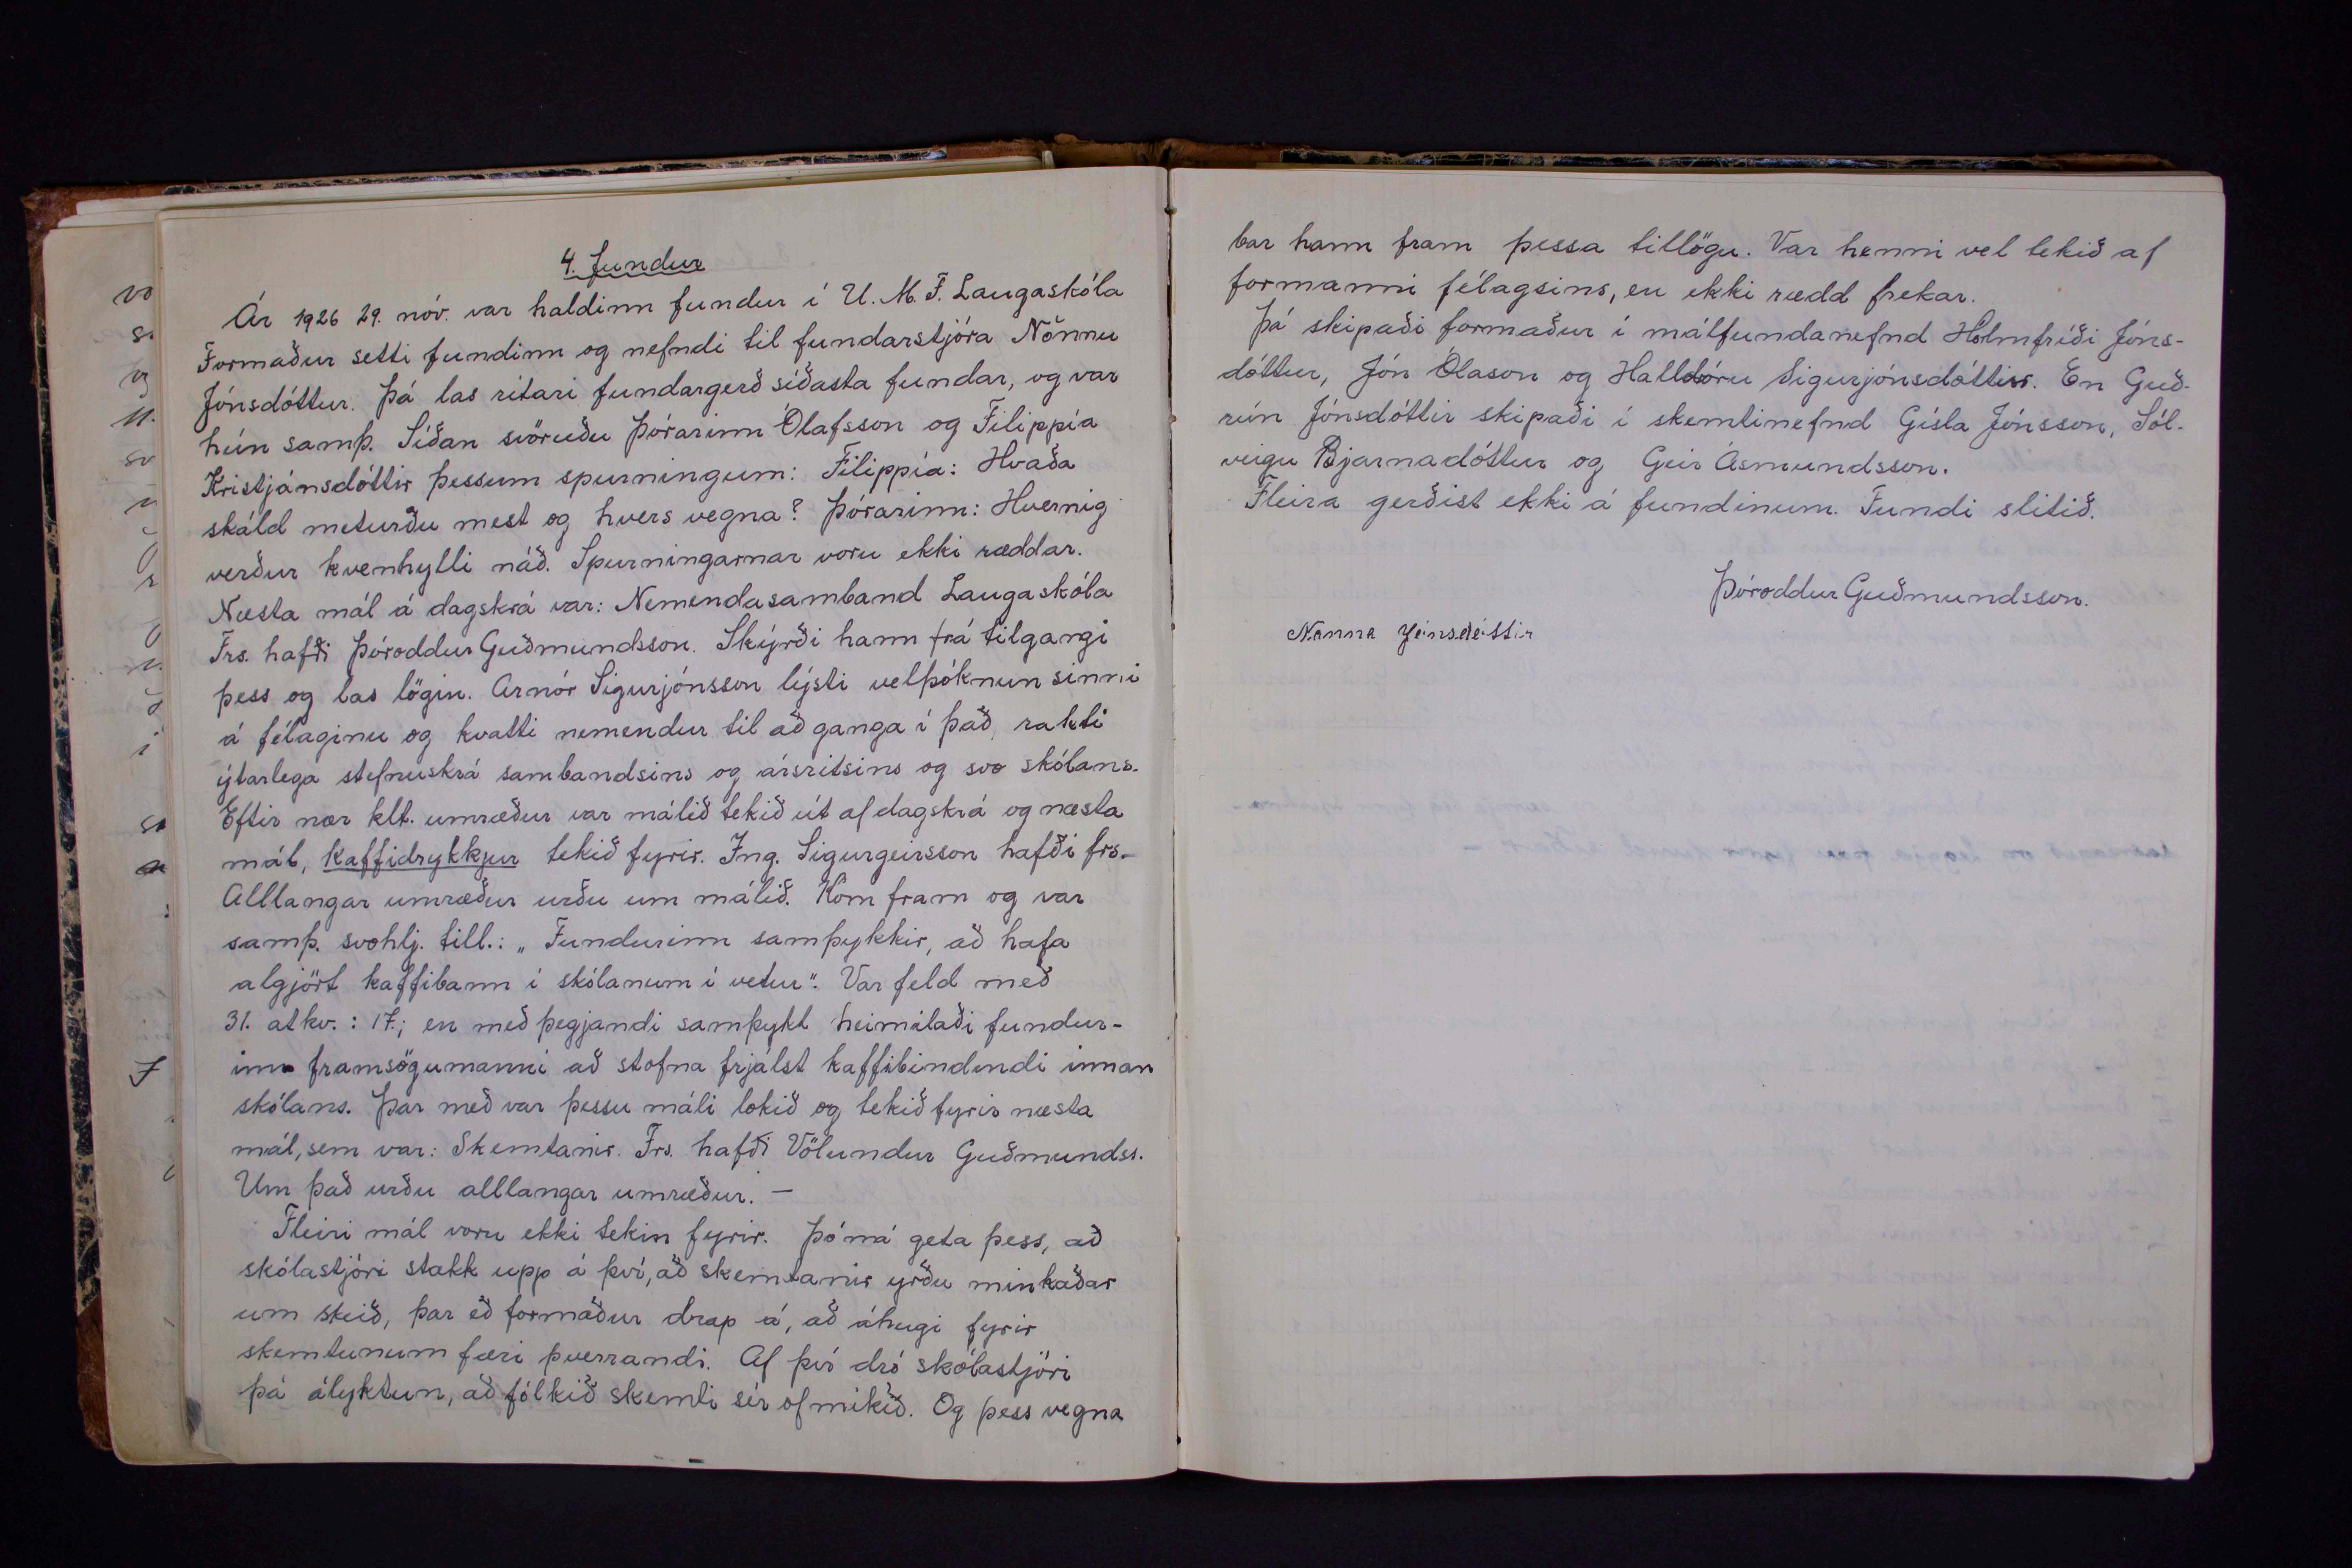 4. fundur
Ár 1926 29. nóv. var haldinn fundur í U. M. F. Laugaskóla
Formaður setti fundinn og nefndi til fundarstjóra Nönnu
Jónsdóttur. Þá las ritari fundargerð síðasta fundar, og var
hún samþ. Síðan svöruðu Þórarinn Ólafsson og Filippía
Kristjánsdóttir þessum spurningum: Filippía: Hvaða
skáld meturðu mest og hvers vegna? Þórarinn: Hvernig
verður kvenhylli náð. Spurningarnar voru ekki ræddar.
Næsta mál á dagskrá var: Nemendasamband Laugaskóla
Frs. hafði Þóroddur Guðmundsson. Skýrði hann frá tilgangi
þess og las lögin. Arnór Sigurjónsson lýsti velþóknun sinni
á félaginu og kvatti nemendur til að ganga í það, rakti
ýtarlega stefnuskrá sambandsins og ársritsins og svo skólans.
Eftir nær klt. umræður var málið tekið út af dagskrá og næsta
mál, Kaffidrykkjur tekið fyrir. Ing. Sigurgeirsson hafði frs.-
Alllangar umræður urðu um málið. Kom fram og var
samþ. svohlj. till.: „Fundurinn samþykkir, að hafa
algjört kaffibann í skólanum í vetur". Var feld með
31. atkv. : 17.; en með þegjandi samþykt heimilaði fundur-
inn framsögumanni að stofna frjálst kaffibindindi innan
skólans. Þar með var þessu máli lokið og tekið fyrir næsta
mál, sem var: Skemtanir. Frs. hafði Völundur Guðmundss.
Um það urðu alllangar umræður. —
Fleiri mál voru ekki tekin fyrir. Þó má geta þess, að
skólastjóri stakk upp á því, að skemtanir yrðu minkaðar
um skeið, þar eð formaður drap á, að áhugi fyrir
skemtunum færi þverrandi. Af því dró skólastjóri
þá ályktun, að fólkið skemti sér of mikið. Og þess vegna
bar hann fram þessa tillögu. Var henni vel tekið af
formanni félagsins, en ekki rædd frekar.
Þá skipaði formaður í málfundanefnd Hólmfríði Jóns-
dóttur, Jón Ólason og Halldóru Sigurjónsdóttir. En Guð-
rún Jónsdóttir skipaði í skemtinefnd Gísla Jónsson, Sól-
veigu Bjarnadóttur og Geir Ásmundsson.
Fleira gerðist ekki á fundinum. Fundi slitið.
Þóroddur Guðmundsson.
Nanna Jónsdóttir